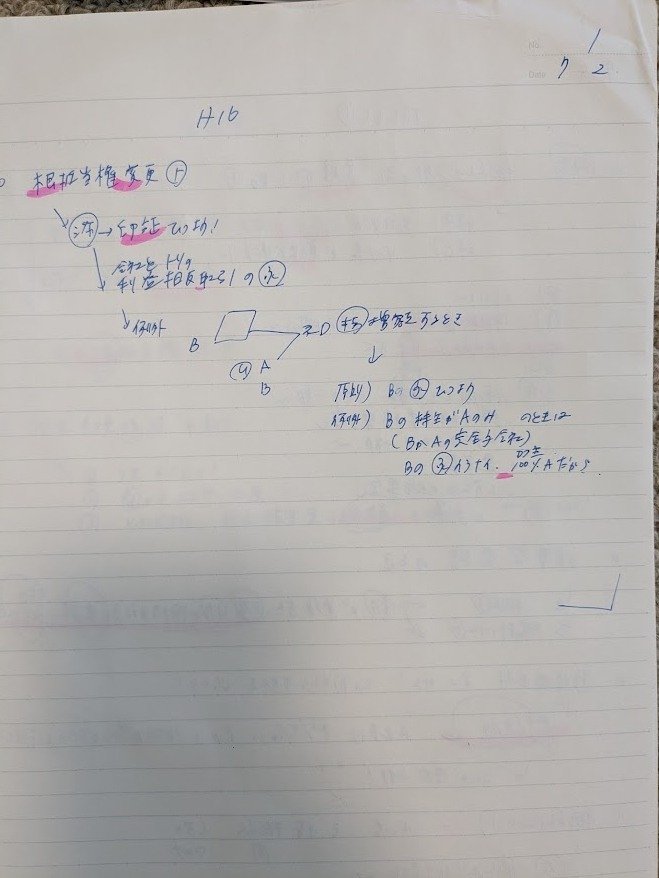 No. 1
Date 7 2
H16
根抵当権変更 ㋣
→ 印証 ひつよう!
会社と トリの
利益相反取引の
↓ 例外
B
根D 極 増額するとき
A
B
↓
原則) Bの ひつよう
例外) Bの株主がAのみ のときは
(BがAの完全子会社)
Bの イラナイ. 株主
100% Aだから